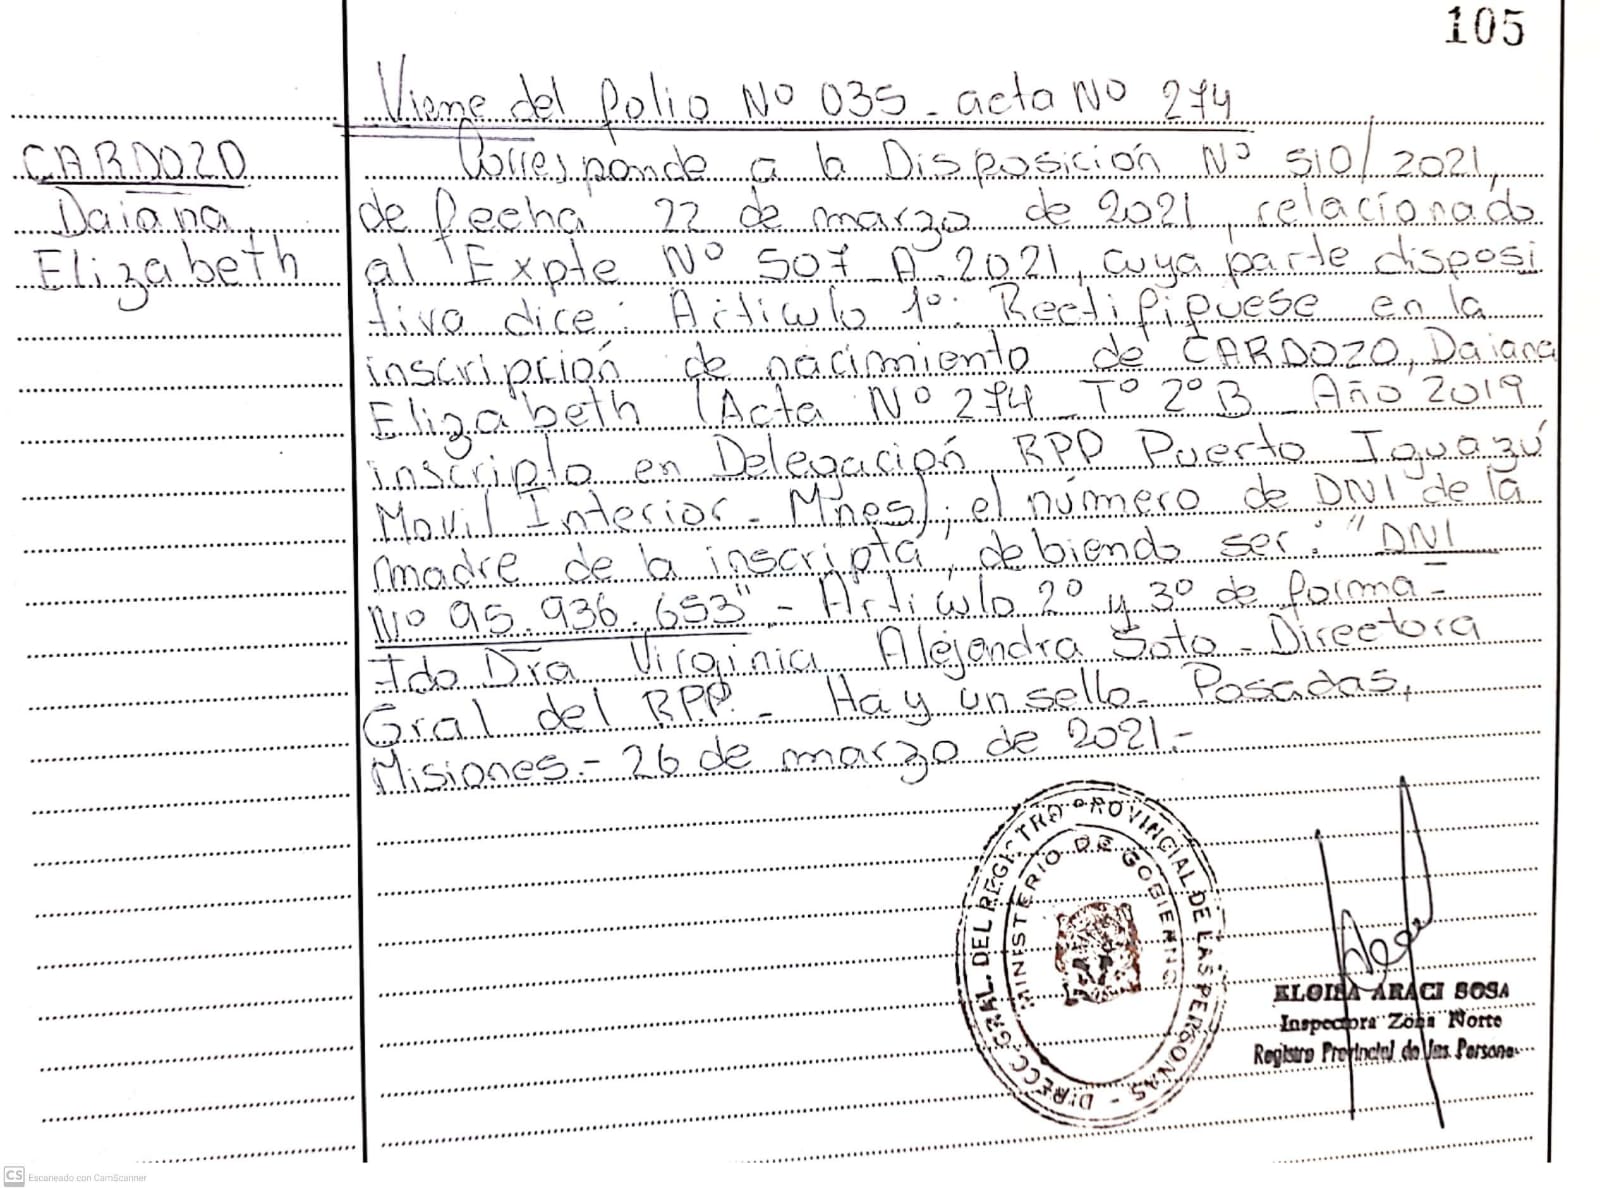 105
Viene del folio Nº 035 - acta Nº 274
CARDOZO
Daiana
Elizabeth
Corresponde a la Disposición Nº 510/2021,
de fecha 22 de marzo de 2021, relacionado
al Expte Nº 507 A 2021, cuya parte disposi
tiva dice: Artículo 1º: Rectifíquese en la
inscripción de nacimiento de CARDOZO, Daiana
Elizabeth (Acta Nº 274 - Tº 2º B - Año 2019
inscripto en Delegación RPP Puerto Iguazú
Movil Interior - Mnes); el número de DNI de la
madre de la inscripta, debiendo ser: "DNI
Nº 95.936.653" - Artículo 2º y 3º de forma -
Fdo Dra Virginia Alejandra Soto - Directora
Gral del RPP. - Hay un sello - Posadas,
Misiones.- 26 de marzo de 2021.-
DIRECC. GRAL. DEL REGISTRO PROVINCIAL DE LAS PERSONAS -
MINISTERIO DE GOBIERNO
ELOISA ARACI SOSA
Inspectora Zona Norte
Registro Provincial de las Persona
CS Escaneado con CamScanner